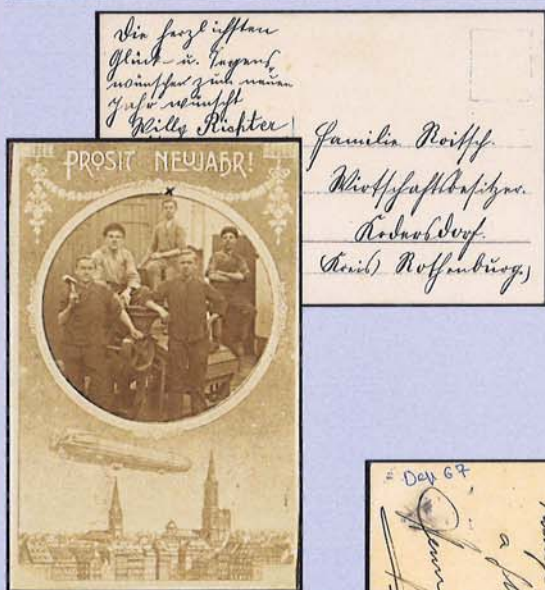 Die herzlichsten
Glück- u. Segens
wünsche zum neuen
Jahr wünscht
Willy Richter
Familie Noitsch.
Wirtschaftsbesitzer.
Kodersdorf.
(Kreis) Rothenburg.)
PROSIT NEUJAHR!
x
a